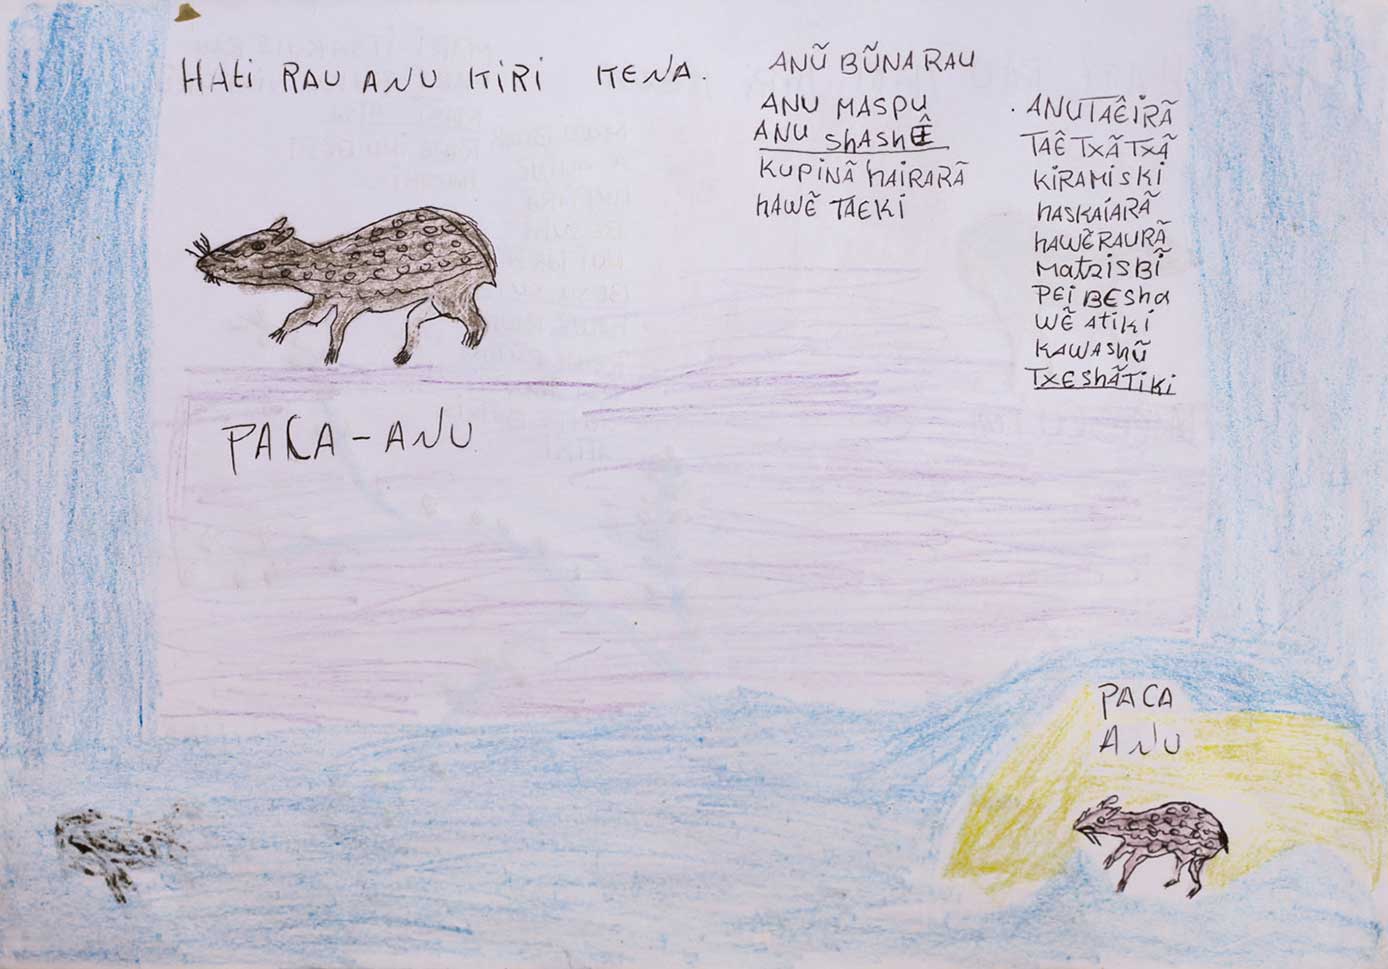 HAti RAU ANU KIRI KENA.
ANŨ BŨNA RAU
ANU MASPU
ANU ShAShÊ
KUPINÃ hAIRARÃ
hAWẼ TAEKI
. ANUTAÊIRÃ
TAÊ TxÃTxÃ
KIRAMISKI
hASKAIARÃ
hAWẼRAURÃ
MAtziSBĨ
PEI BESha
WẼ AtiKi
KAWAShŨ
TXEShÃTiKi
PACA - ANU
PACA
ANU